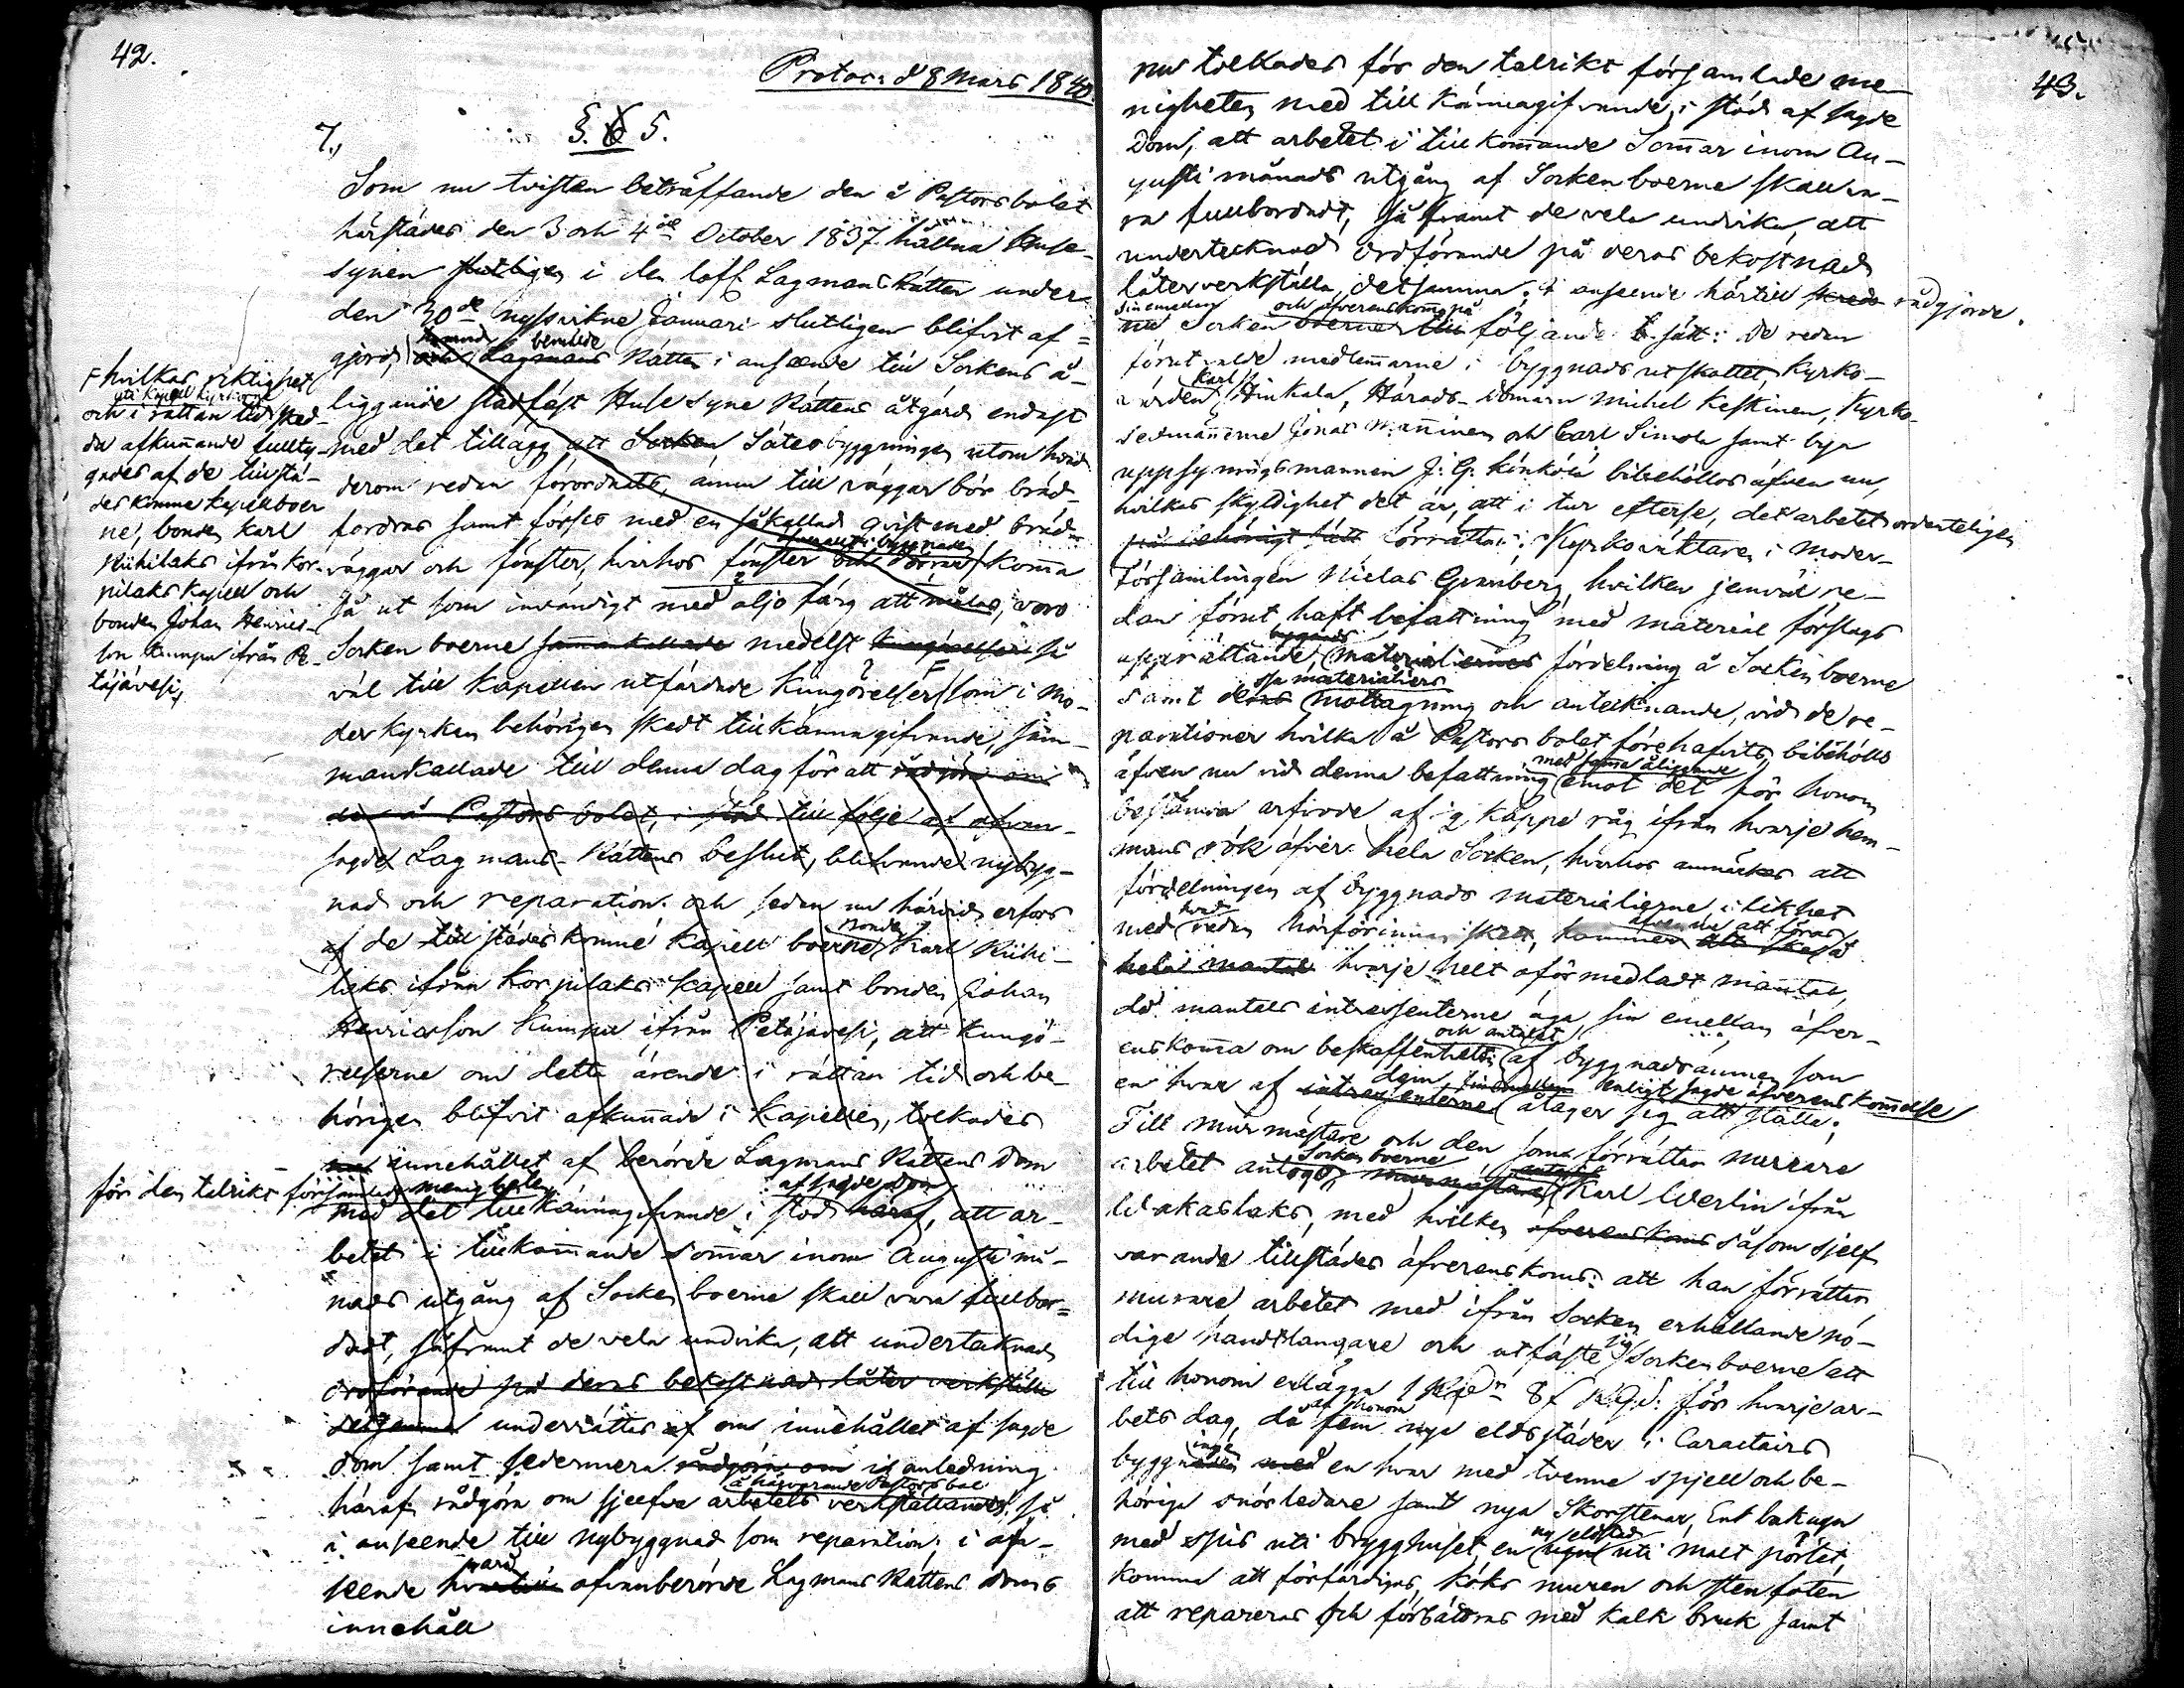 42.
Protoc: d 8 Mars 1840.
7.,
§. 6 5.
Som nu tvisten beträffande den å Pastorsbolet
härstädes den 3 och 4de October 1837 hållna Huse-
synen slutligen i den loff. Lagmans Rätten under
den 30de nyssvikne Januari slutligen blifvit af-
berörde
gjord, och Lagmans Rätten i anseende till Sockens å-
liggande stadfäst Husesyne Rättens åtgärd endast
med det tillägg att Socken, Sätesbyggningen utom hvad
derom redan förordnats, ännu till väggar bör bräd-
fordras samt förses med en såkallad qvist med bräd-
väggar och fönster, hvarhos fönster och dörrar komma
så ut som invändigt med oljo färg att målas, voro
Socken boerne sammankallade medelst kungörelser så
väl till Kapellen utfärdade Kungörelser F som i Mo-
derkyrkan behörigen skedt tillkännagifvande, sam-
mankallade till denna dag för att rådgöra om
den å Pastors bolet, i stöd till följe af ofvan-
sagde Lagmans-Rättens beslut, blifvande nybyg-
nad och reparation. och sedan nu härvid erfors
bonden
af de tillstädeskomne Kapell boerne Karl Riihi-
laks ifrån Korpilaks Kapell samt bonden Johan
Henricsson Kumpu ifrån Petäjävesi, att kungö-
relserne om detta ärende i rättan tid och be-
hörigen blifvit afkunnade i Kapellen, tolkades
nu innehållet af berörde Lagmans Rättens Dom
för den talrikt församlade menigheten
af sagde dom
med det tillkännagifvande i stöd häraf, att ar-
betet i tillkommande sommar inom Augusti må-
nads utgång af Socken boerne skall vara fullbor-
dadt, såframt de vela undvika, att undertecknad
ordförande på deras bekostnad låter verkställa
detsamma underrättas af om innehållet af sagde
dom samt sedermera rådgöra om i anledning
å härvarande Pastors bol
häraf rådgöra om sjelfva arbetets verkställande så
i anseende till nybyggnad som reparation i afse-
ende hvartill ofvanberörde Lagmans Rättens doms
innehåll
F hvilkas riktighet
uti Kapell kyrkorne
och i rättan tid sked-
da afkunnande fullty-
gades af de tillstä-
des komne Kapellboer
ne, bonden Karl
Riihilaks ifrån Kor-
pilaks Kapell och
bonden Johan Henrics-
son Kumpu ifrån Pe-
täjävesi,
43.
nu tolkades för den talrikt församlade me-
nigheten med tillkännagifvande, i stöd af sagde
Dom, att arbetet i tillkommande Sommar inom Au-
gusti månads utgång af Sockenboerne skall va-
ra fullbordadt, så framt de vela undvika, att
undertecknad ordförande på deras bekostnad
låter verkställa detsamma; i anseende härtill skreds rådgjorde
sinemellan
och öfverenskom på
nu Socken boerne till följande sätt: De redan
förut valde medlemmarne i byggnads utskottet, Kyrko-
Karl
värden Hinkala, Härads-domarn Michel Keskinen, Kyrko-
sexmännerne Jonas Manninen och Carl Simola samt bya
uppsyningsmannen J. G. Könkölä bibehöllos äfven nu,
hvilkas skyldighet det är, att i tur efterse, det arbetet ordenteligen
på behörigt sätt förrättas; Kyrkoväktaren i Moder-
församlingen Niclas Granberg, hvilken jemväl re-
dan förut haft befattning med material förslags
byggnads
upprättande, materialiernes fördelning å Sockenboerne
materialiers
samt deras mottagning och antecknande, vid de re-
parationer hvilka å Pastors bolet förehafvits, bibehölls
med samma åliggande
äfven nu vid denna befattning emot det för honom
bestämda arfvode af ½ kappe råg ifrån hvarje hem-
mans rök öfver hela Socken, hvarhos anmärktes att
fördelningen af byggnads materialierne i likhet
hvad
med redan härförinnan skett, kommer att ske å
hela mantal hvarje helt oförmedladt mantal,
då mantals intressenterne äga sin emellan öfver-
och antalet
enskomma om beskaffenheten af byggnadsämnen som
dem
enligt sagde öfverenskommelse
en hvar af intressenterne åtager sig att ställa;
Till murmästare och den som förrättar murare
Socken boerne
arbetet antogo murmästare Karl Werlin ifrån
Wakaslaks, med hvilken öfverenskoms såsom sjelf
varande tillstädes öfverenskoms: att han förrättar
murare arbetet med ifrån Socken erhållande nö-
sig
dige handtlangare och utfäste Socken boerne att
till honom erlägga 1 Rdr 8 s R.G.s. för hvarje ar-
af honom
bets dag, då fem nya eldstäder i Caractairs
ingen
byggnaden med en hvar med tvenne spjell och be-
höriga snörledare samt nya Skorstenar, Ent bakugn
ny eldstad
med spis uti brygghuset, en ugn uti malt pörtet,
komma att förfärdigas, köks muren och stenfoten
att repareras och förbättras med kalk bruk samt